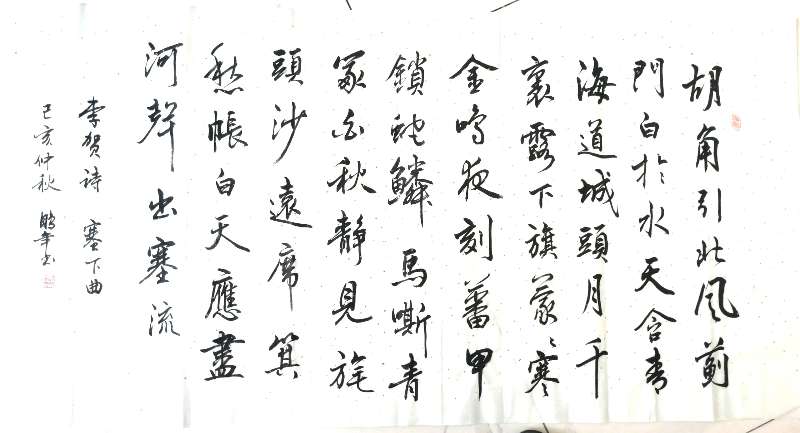 胡角引北風薊
門白於水天含青
海道城頭月千
裏露下旗蒙〻寒
金鳴夜刻蕃甲
鎖蛇鱗馬嘶青
冢白秋靜見旄
頭沙遠席箕
愁帳白天應盡
河聲出塞流
李賀詩 塞下曲
己亥仲秋